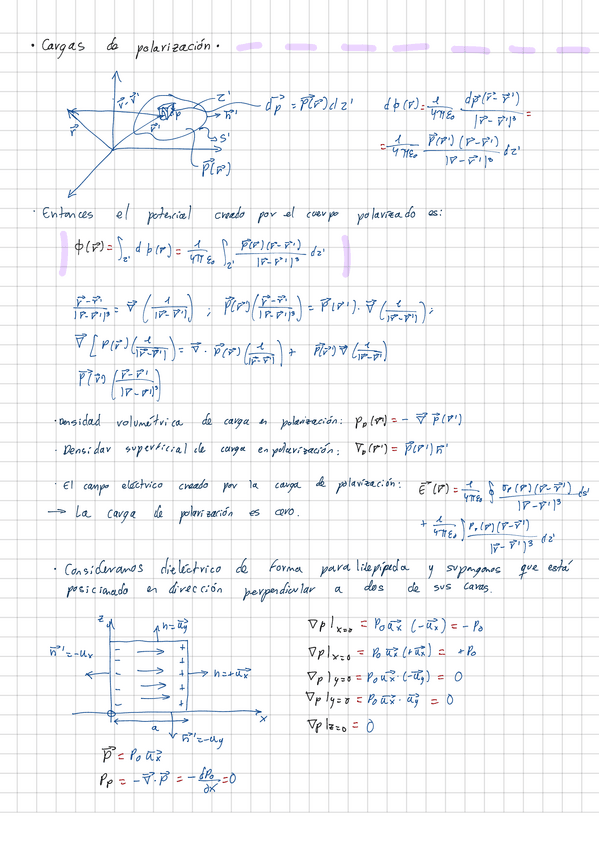 · Cargas de polarización ·
z'
d⃗p = P⃗(r⃗') dz'
n⃗'
S'
P⃗(r⃗)
dϕ(r⃗) = 1/4πε₀ dp⃗(r⃗-r⃗')/|r⃗-r⃗'|³ =
= 1/4πε₀ P⃗(r⃗')(r⃗-r⃗')/|r⃗-r⃗'|³ dz'
· Entonces el potencial creado por el cuerpo polarizado es:
ϕ(r⃗) = ∫z' dϕ(r⃗) = 1/4πε₀ ∫z' P⃗(r⃗')(r⃗-r⃗')/|r⃗-r⃗'|³ dz'
r⃗-r⃗'/|r⃗-r⃗'|³ = ∇⃗ (1/|r⃗-r⃗'|) ; P⃗(r⃗') (r⃗-r⃗'/|r⃗-r⃗'|³) = P⃗(r⃗') · ∇⃗ (1/|r⃗-r⃗'|) ;
∇⃗ [P(r⃗') (1/|r⃗-r⃗'|) = ∇⃗ · P⃗(r⃗') (1/|r⃗-r⃗'|) + P⃗(r⃗') ∇⃗ (1/|r⃗-r⃗'|)
P⃗(r⃗') (r⃗-r⃗'/|r⃗-r⃗'|³)
· Densidad volumétrica de carga en polarización: ρp(r⃗') = - ∇⃗ P⃗(r⃗')
· Densidar superficial de carga en polarización: ∇p(r⃗') = P⃗(r⃗') n⃗'
· El campo eléctrico creado por la carga de polarización: E⃗(r⃗) = 1/4πε₀ ∮ σp(r⃗')(r⃗-r⃗')/|r⃗-r⃗'|³ ds'
→ La carga de polarización es cero.
+ 1/4πε₀ ∫ ρp(r⃗')(r⃗-r⃗')/|r⃗-r⃗'|³ dz'
· Consideramos dieléctrico de forma paralilepípeda y supongamos que está
posicionado en dirección perpendicular a dos de sus caras.
z
n = u⃗y
n⃗' = -ux
n = +u⃗x
a
x
n⃗' = -uy
P⃗ = P₀ u⃗x
ρp = -∇⃗·P⃗ = - δP₀/∂x = 0
∇p|x=a = P₀ u⃗x (-u⃗x) = - P₀
∇p|x=0 = P₀ u⃗x (+u⃗x) = + P₀
∇p|y=0 = P₀ u⃗x · (-u⃗y) = 0
∇p|y=0 = P₀ u⃗x · u⃗y = 0
∇p|z=0 = 0